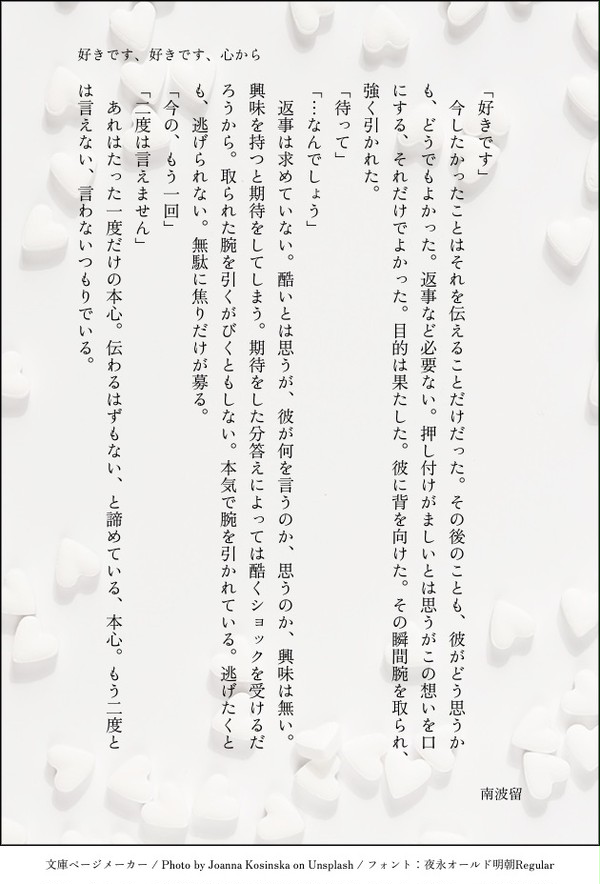 好きです、好きです、心から
「好きです」
　今したかったことはそれを伝えることだけだった。その後のことも、彼がどう思うか
も、どうでもよかった。返事など必要ない。押し付けがましいとは思うがこの想いを口
にする、それだけでよかった。目的は果たした。彼に背を向けた。その瞬間腕を取られ、
強く引かれた。
「待って」
「…なんでしょう」
　返事は求めていない。酷いとは思うが、彼が何を言うのか、思うのか、興味は無い。
興味を持つと期待をしてしまう。期待をした分答えによっては酷くショックを受けるだ
ろうから。取られた腕を引くがびくともしない。本気で腕を引かれている。逃げたくと
も、逃げられない。無駄に焦りだけが募る。
「今の、もう一回」
「二度は言えません」
　あれはたった一度だけの本心。伝わるはずもない、と諦めている、本心。もう二度と
は言えない、言わないつもりでいる。
南波留
文庫ページメーカー / Photo by Joanna Kosinska on Unsplash / フォント：夜永オールド明朝Regular